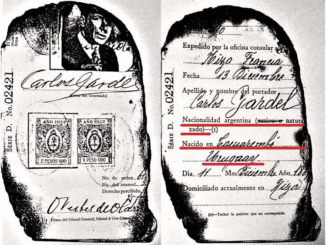 Serie D. No 02421
Carlos Gardel
2 PESOS ORO
2 PESOS ORO
No. de orden
Firma del Cónsul General, Cónsul ó Vice-Cónsul
Serie D. No 02421
Expedido por la oficina consular
Niza Francia
Fecha 13 Diciembre
Apellido y nombre del portador
Carlos Gardel
Nacionalidad argentina (nativo o natura
zado)—(1)
Nacido en Tacuarembó
Uruguay
Día 11 Mes Diciembre Año
Domiciliado actualmente en Niza
(1) Tachar la palabra que no corresponda.